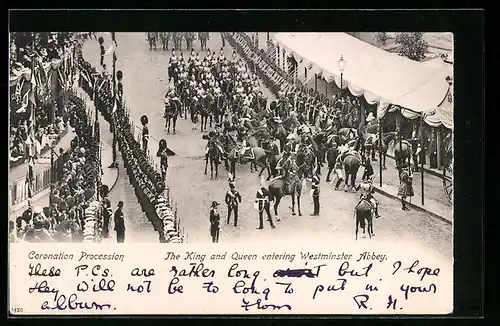 Coronation Procession The King and Queen entering Westminster Abbey.
These P.Cs. are rather long but I hope
they will not be to long to put in your
album. From R. N.
120